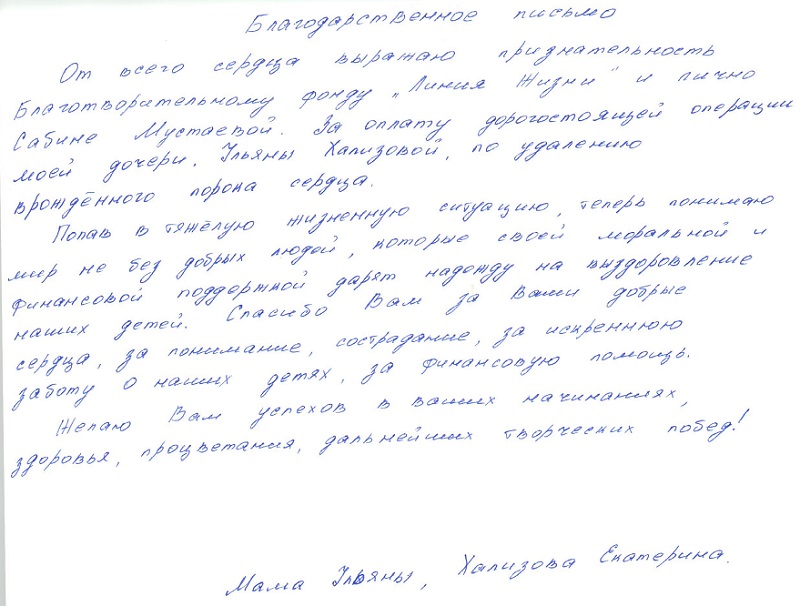 Благодарственное письмо
От всего сердца выражаю признательность
Благотворительному фонду „Линия Жизни" и лично
Сабине Мустаевой. За оплату дорогостоящей операции
моей дочери, Ульяны Хализовой, по удалению
врождённого порока сердца.
Попав в тяжёлую жизненную ситуацию, теперь понимаю
мир не без добрых людей, которые своей моральной и
финансовой поддержкой дарят надежду на выздоровление
наших детей. Спасибо Вам за Ваши добрые
сердца, за понимание, сострадание, за искреннюю
заботу о наших детях, за финансовую помощь.
Желаю Вам успехов в ваших начинаниях,
здоровья, процветания, дальнейших творческих побед!
Мама Ульяны, Хализова Екатерина.